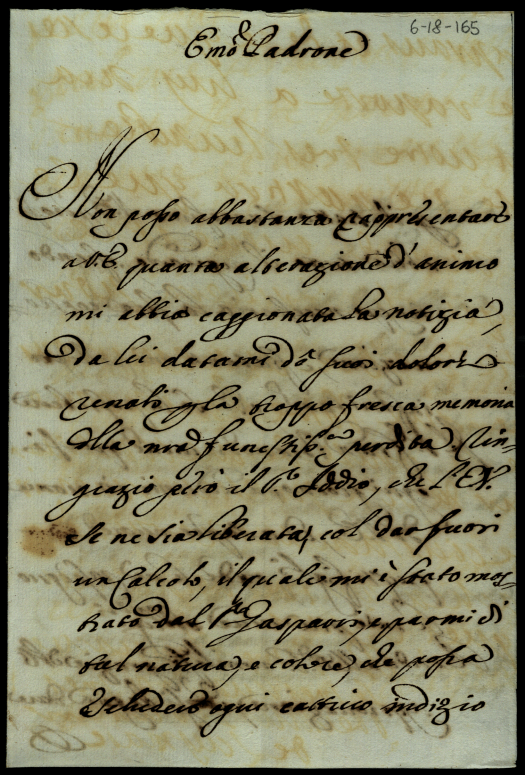 6-18-165
Emo Padrone
Non posso abbastanza rappresentare
a V.E. quanta alterazione d'animo
mi abbia caggionata la notizia,
da lei datami de suoi dolori
renali p la troppo fresca memoria
della nra funestissa perdita. Rin-
grazio però il Sr Iddio, che l'E.V.
se ne sia liberata, col dar fuori
un Calcolo, il quale mi è stato mos-
trato dal Gaspari, e parmi di
tal natura, e colore, che possa
escludere ogni cattivo indizio